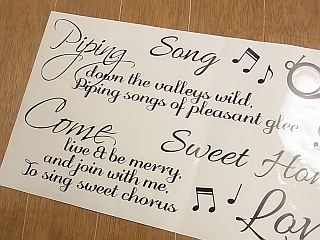 Piping Song
down the valleys wild,
Piping songs of pleasant glee
Come
live & be merry,
and join with me,
To sing sweet chorus
Sweet